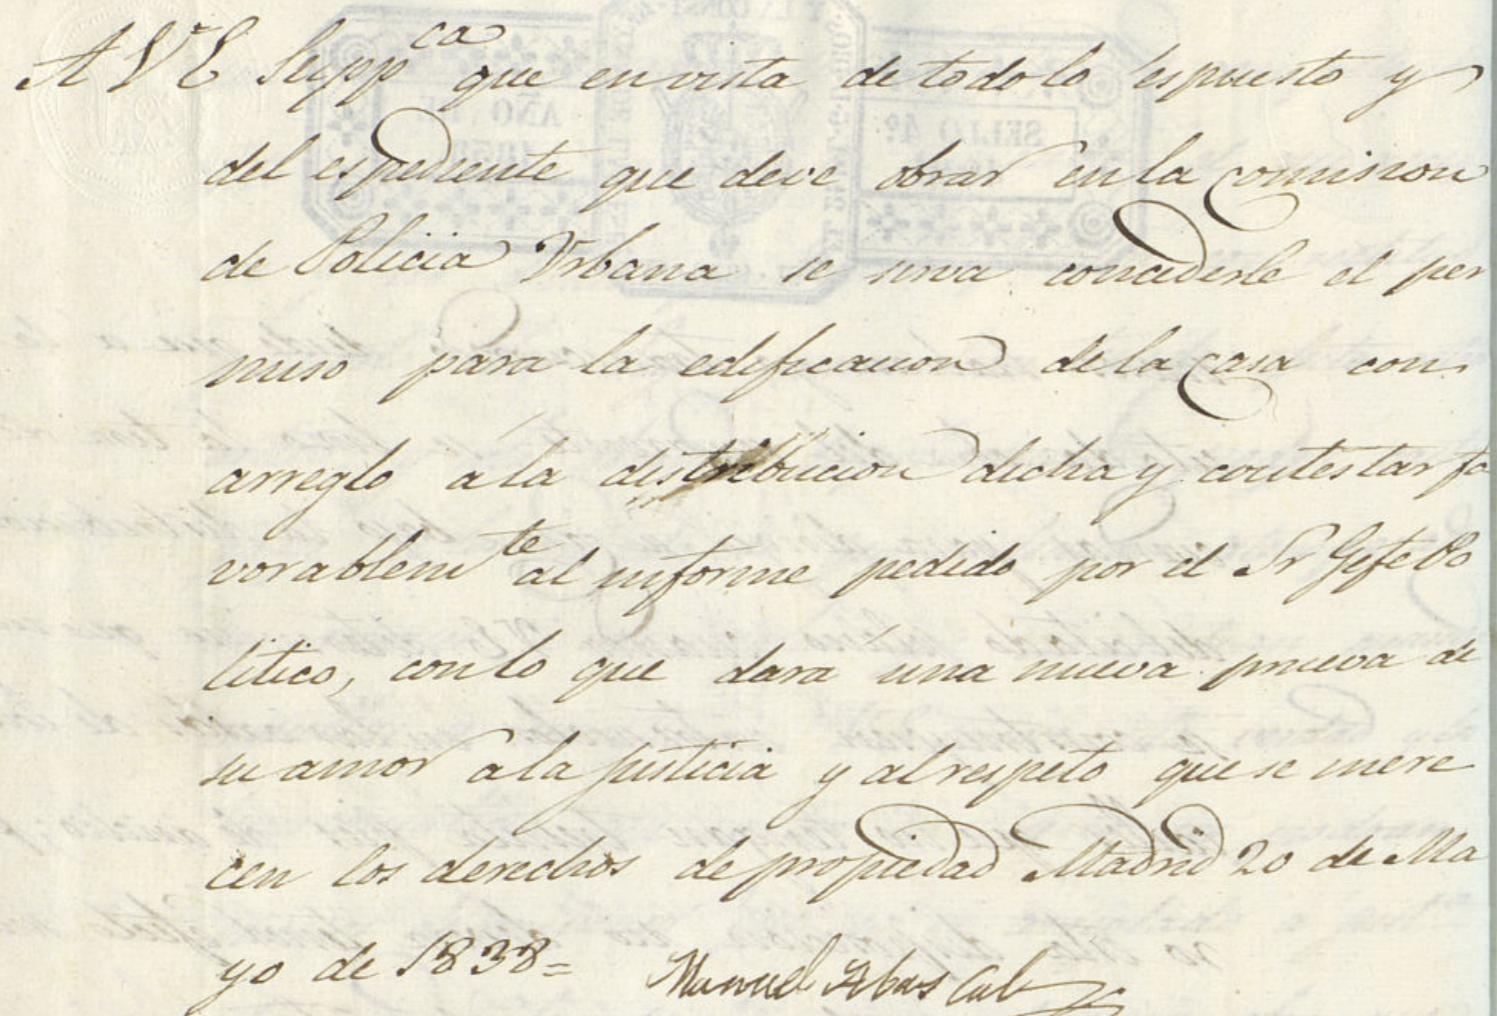 A V. E Supp ca que en vista de todo lo espuesto y
del espediente que deve obrar en la comision
de Policia Urbana se sirva concederle el per
miso para la edificacion de la casa con
arreglo a la distribucion dicha y contestar fa
vorablem te al informe pedido por el Sr Gefe Po
litico, con lo que dara una nueva prueva de
su amor a la justicia y al respeto que se mere
cen los derechos de propiedad Madrid 20 de Ma
yo de 1838=
Manuel Abascal